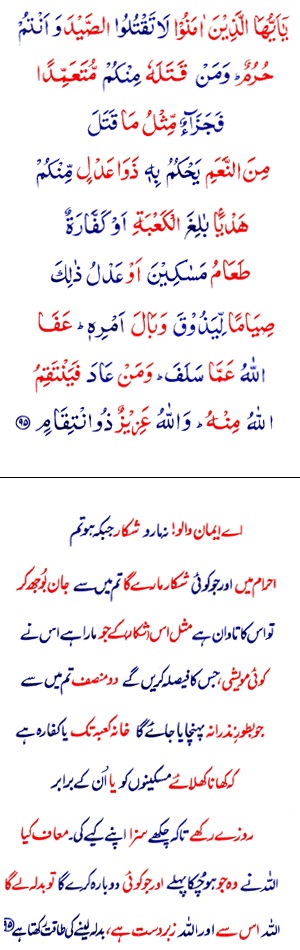 يٰۤاَيُّهَا الَّذِيْنَ اٰمَنُوْا لَا تَقْتُلُوا الصَّيْدَ وَ اَنْتُمْ
حُرُمٌ ؕ وَمَنْ قَتَلَهٗ مِنْكُمْ مُّتَعَمِّدًا
فَجَزَآءٌ مِّثْلُ مَا قَتَلَ
مِنَ النَّعَمِ يَحْكُمُ بِهٖ ذَوَا عَدْلٍ مِّنْكُمْ
هَدْيًۢا بٰلِغَ الْكَعْبَةِ اَوْ كَفَّارَةٌ
طَعَامُ مَسٰكِيْنَ اَوْ عَدْلُ ذٰلِكَ
صِيَامًا لِّيَذُوْقَ وَبَالَ اَمْرِهٖ ؕ عَفَا
اللّٰهُ عَمَّا سَلَفَ ؕ وَمَنْ عَادَ فَيَنْتَقِمُ
اللّٰهُ مِنْهُ ؕ وَاللّٰهُ عَزِيْزٌ ذُو انْتِقَامٍ ۹۵
اے ایمان والو! نہ مارو شکار جبکہ ہو تم
احرام میں اور جو کوئی شکار مارے گا تم میں سے جان بُوجھ کر
تو اس کا تاوان ہے مثل اس (شکار) کے جو مارا ہے اس نے
کوئی مویشی، جس کا فیصلہ کریں گے دو منصف تم میں سے
جو بطور نذرانہ پہنچایا جائے گا خانہ کعبہ تک یا کفارہ ہے
کہ کھانا کھلائے مسکینوں کو یا اُن کے برابر
روزے رکھے تاکہ چکھے سزا اپنے کیے کی۔ معاف کیا
اللہ نے وہ جو ہو چُکا پہلے اور جو کوئی دوبارہ کرے گا تو بدلہ لے گا
اللہ اس سے اور اللہ زبردست ہے، بدلہ لینے کی طاقت رکھتا ہے ۹۵